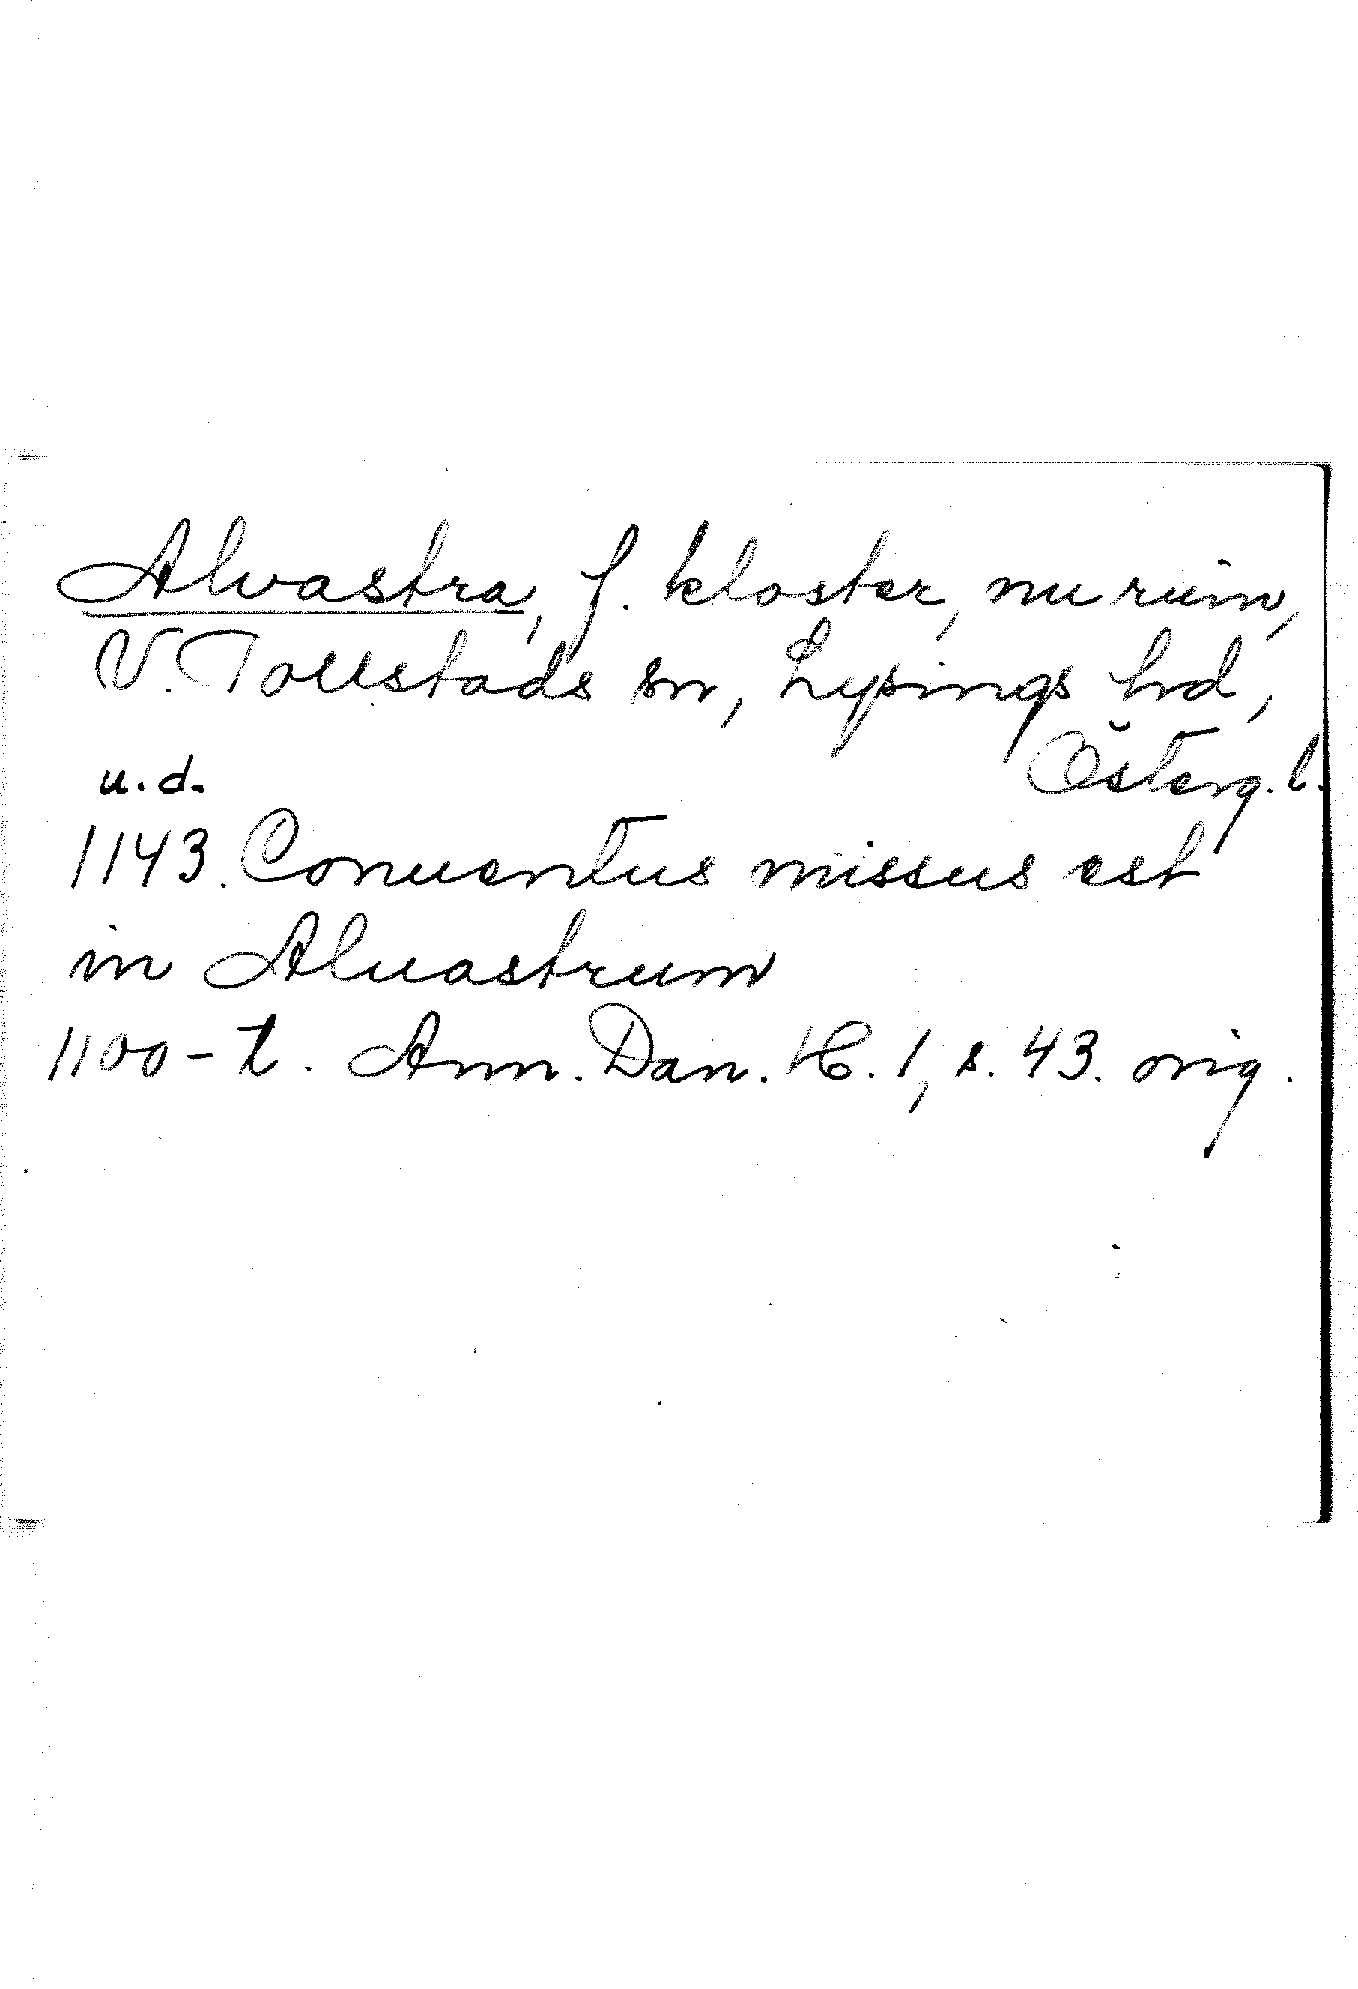 Alvastra, f. kloster, nu ruin,
V. Tollstads sn, Lysings hrd,
Österg. l.
u.d.
1143. Conuentus missus est
in Aluastrum
1100-t. Ann. Dan. H. 1, s. 43. orig.